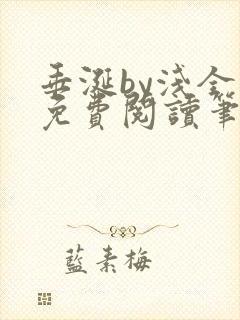 垂涎by浅金
免費閱讀筆
藍素梅